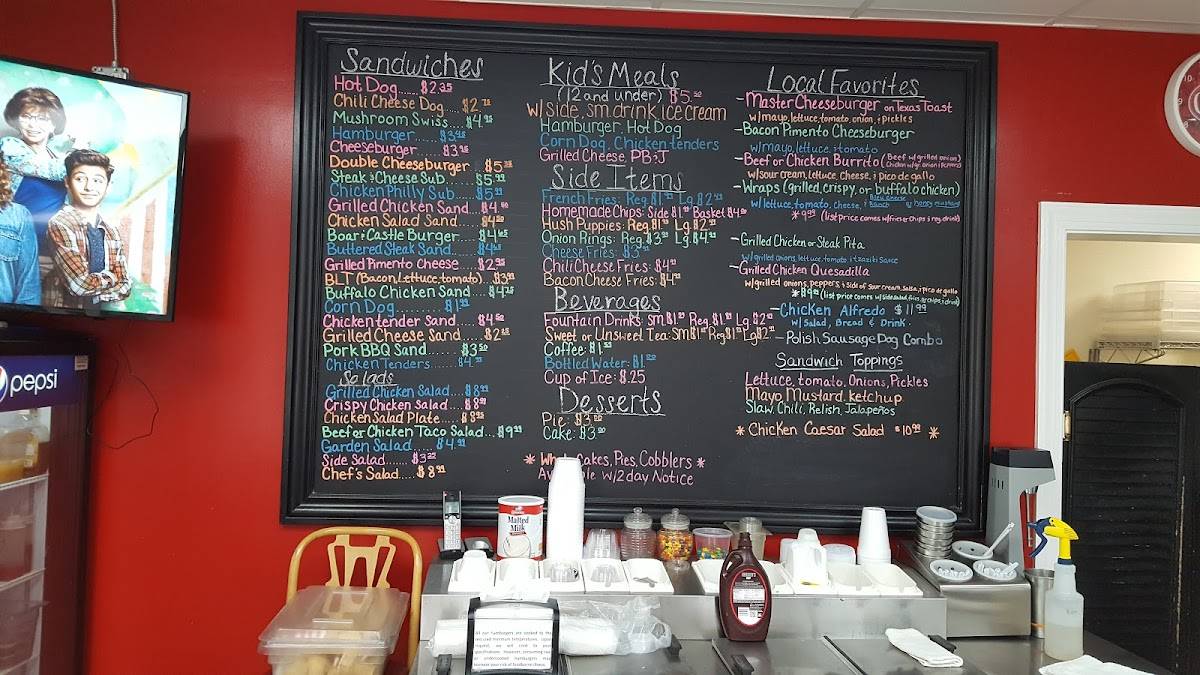 Sandwiches
Hot Dog......$2.25
Chili Cheese Dog....$2.75
Mushroom Swiss....$4.95
Hamburger.......$3.45
Cheeseburger......$3.95
Double Cheeseburger....$5
Steak & Cheese Sub.......$5.99
Chicken Philly Sub.....$5.99
Grilled Chicken Sand....$4
Chicken Salad Sand.....$4.50
Boar's Castle Burger....$4.65
Buttered Steak Sand....$4.65
Grilled Pimento Cheese....$2.95
BLT (Bacon, Lettuce, tomato)....$3.99
Buffalo Chicken Sand....$4.75
Corn Dog........$1.99
Chickentender Sand....$4.50
Grilled Cheese Sand.....$2.25
Pork BBQ Sand......$3.50
Chicken Tenders......$4.
Salads
Grilled Chicken Salad....$8.99
Crispy Chicken Salad....$8.99
Chicken Salad Plate.....$8.95
Beef or Chicken Taco Salad...$9.99
Garden Salad......$4.99
Side Salad.......$3.
Chef's Salad.....$8.99
Kid's Meals
(12 and under) $5.50
w/side, sm. drink, ice cream
Hamburger, Hot Dog
Corn Dog, Chicken tenders
Grilled Cheese, PB&J
Side Items
French Fries: Reg. $1.99 Lg. $2.99
Homemade Chips: Side $1. Basket $4.
Hush Puppies: Reg. $1. Lg. $2.
Onion Rings: Reg. $3. Lg. $4.
Cheese Fries: $3.
Chili Cheese Fries: $4.
Bacon Cheese Fries: $4.
Beverages
Fountain Drinks: sm. $1. Reg. $1. Lg. $2.
Sweet or Unsweet Tea: sm $1. Reg $1. Lg $2.
Coffee: $1.
Bottled Water: $1.
Cup of Ice: $.25
Desserts
Pie: $3.00
Cake: $3.00
* Cakes, Pies, Cobblers *
w/2 day Notice
Local Favorites
-Master Cheeseburger on Texas Toast
w/mayo, lettuce, tomato, onion, & pickles
-Bacon Pimento Cheeseburger
w/mayo, lettuce, & tomato
-Beef or Chicken Burrito (Beef w/grilled onions)
(Chicken w/gr. onion & peppers)
w/sour cream, lettuce, cheese, & pico de gallo
-Wraps (grilled, crispy, or buffalo chicken)
w/lettuce, tomato, cheese, & bleu cheese Ranch or honey mustard
* 9.99 (list price comes w/fries or chips & reg. drink)
-Grilled Chicken or Steak Pita
w/grilled onions, lettuce, tomato & tzaziki sauce
-Grilled Chicken Quesadilla
w/grilled onions, peppers, & side of sour cream, salsa, & pico de gallo
*$9.99 (list price comes w/side salad, fries, or chips, & drink)
-Chicken Alfredo $11.99
w/Salad, Bread & Drink.
-Polish Sausage Dog Combo
Sandwich Toppings
Lettuce, tomato, Onions, Pickles
Mayo, Mustard, Ketchup
Slaw, Chili, Relish, Jalapeños
* Chicken Caesar Salad $10.99 *
pepsi
Malted
Milk